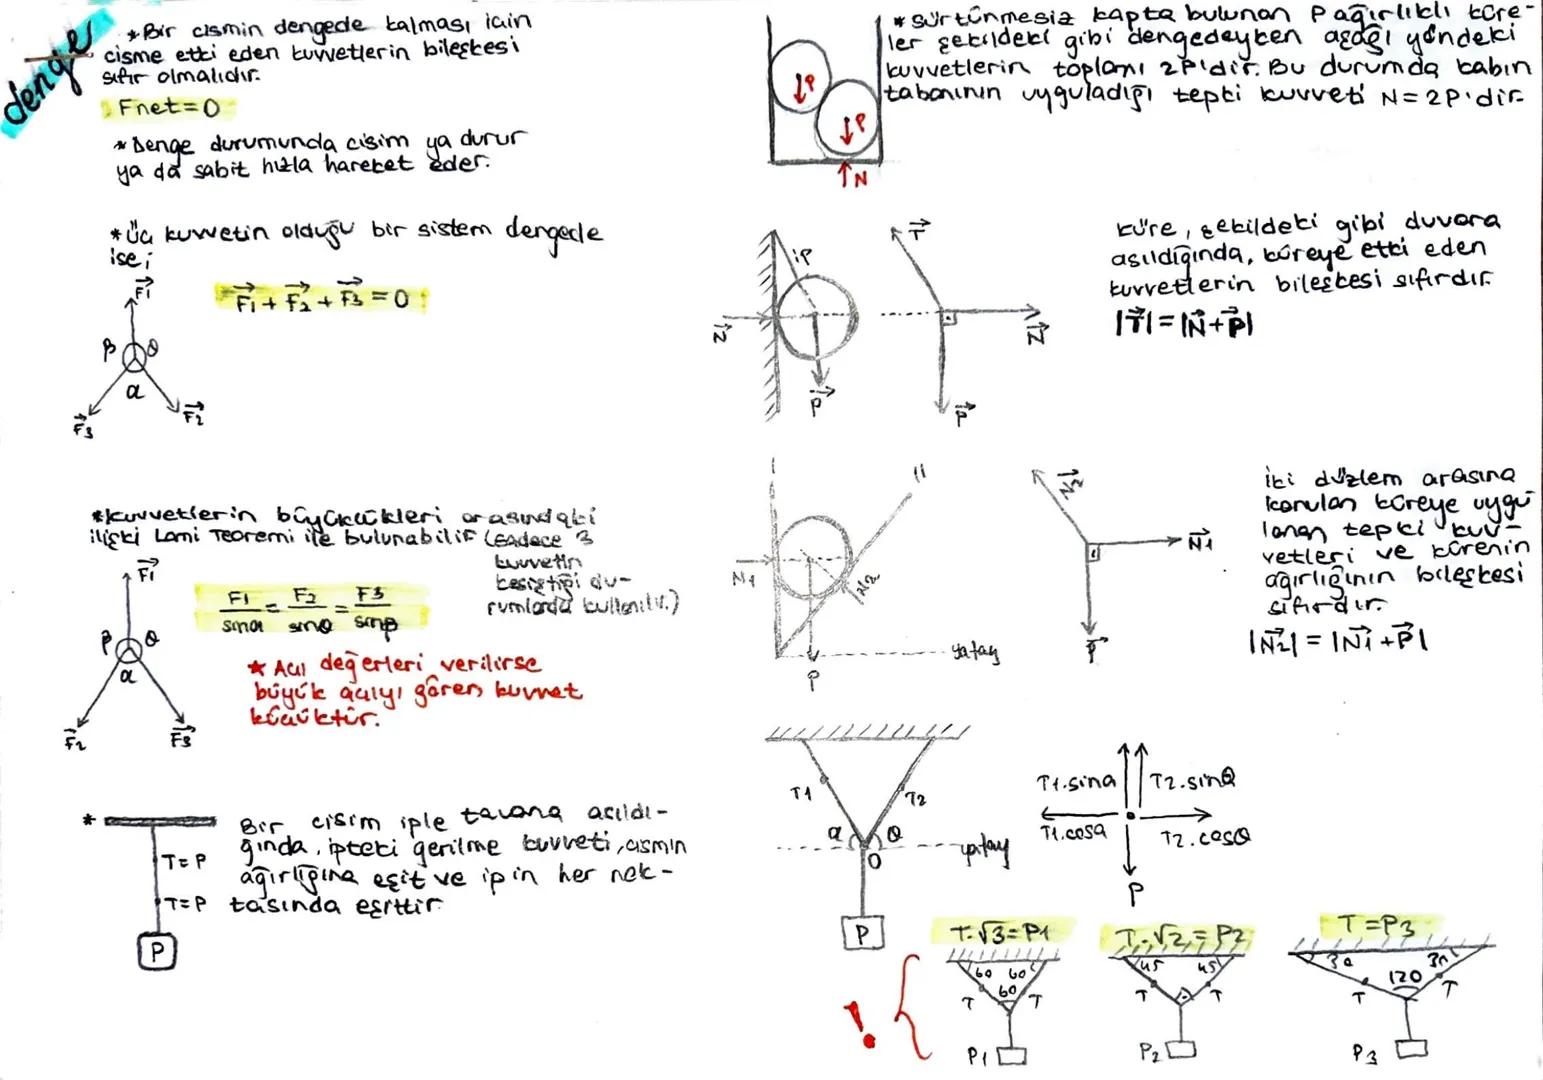 denge
* Bir cismin dengede kalması için
cisme etki eden kuvvetlerin bileşkesi
sıfır olmalıdır.
Fnet=0
* Denge durumunda cisim ya durur
ya da sabit hızla hareket eder.
* Üç kuvvetin olduğu bir sistem dengede
ise;
F1
F1 + F2 + F3 = 0
β θ
α
F3 F2
* Kuvvetlerin büyüklükleri arasındaki
ilişki Lami Teoremi ile bulunabilir (sadece 3
kuvvetin
kesiştiği du-
rumlarda kullanılır.)
F1
F1/sinα = F2/sinθ = F3/sinβ
β θ
α
F2 F3
* Açı değerleri verilirse
büyük açıyı gören kuvvet
küçüktür.
*
Bir cisim iple tavana asıldı-
ğında, ipteki gerilme kuvveti, cismin
ağırlığına eşit ve ipin her nok-
tasında eşittir.
T=P
T=P
P
* Sürtünmesiz kapta bulunan P ağırlıklı küre-
ler şekildeki gibi dengedeyken aşağı yöndeki
kuvvetlerin toplamı 2P'dir. Bu durumda kabın
tabanının uyguladığı tepki kuvveti N=2P'dir.
P
P
N
Küre, şekildeki gibi duvara
asıldığında, küreye etki eden
kuvvetlerin bileşkesi sıfırdır.
|T|=|N+P|
ip
N
P
T
N
P
İki düzlem arasına
konulan küreye uygu
lanan tepki kuv-
vetleri ve kürenin
ağırlığının bileşkesi
sıfırdır.
|N2| = |N1+P|
N1
N2
yatay
P
N2
N1
P
T1 T2
α θ
O
yatay
P
T1.sinα T2.sinθ
T1.cosα T2.cosθ
P
!
T.√3=P1
60 60
60
T T
P1
T.√2=P2
45 45
T T
P2
T=P3
30 30
120
T T
P3